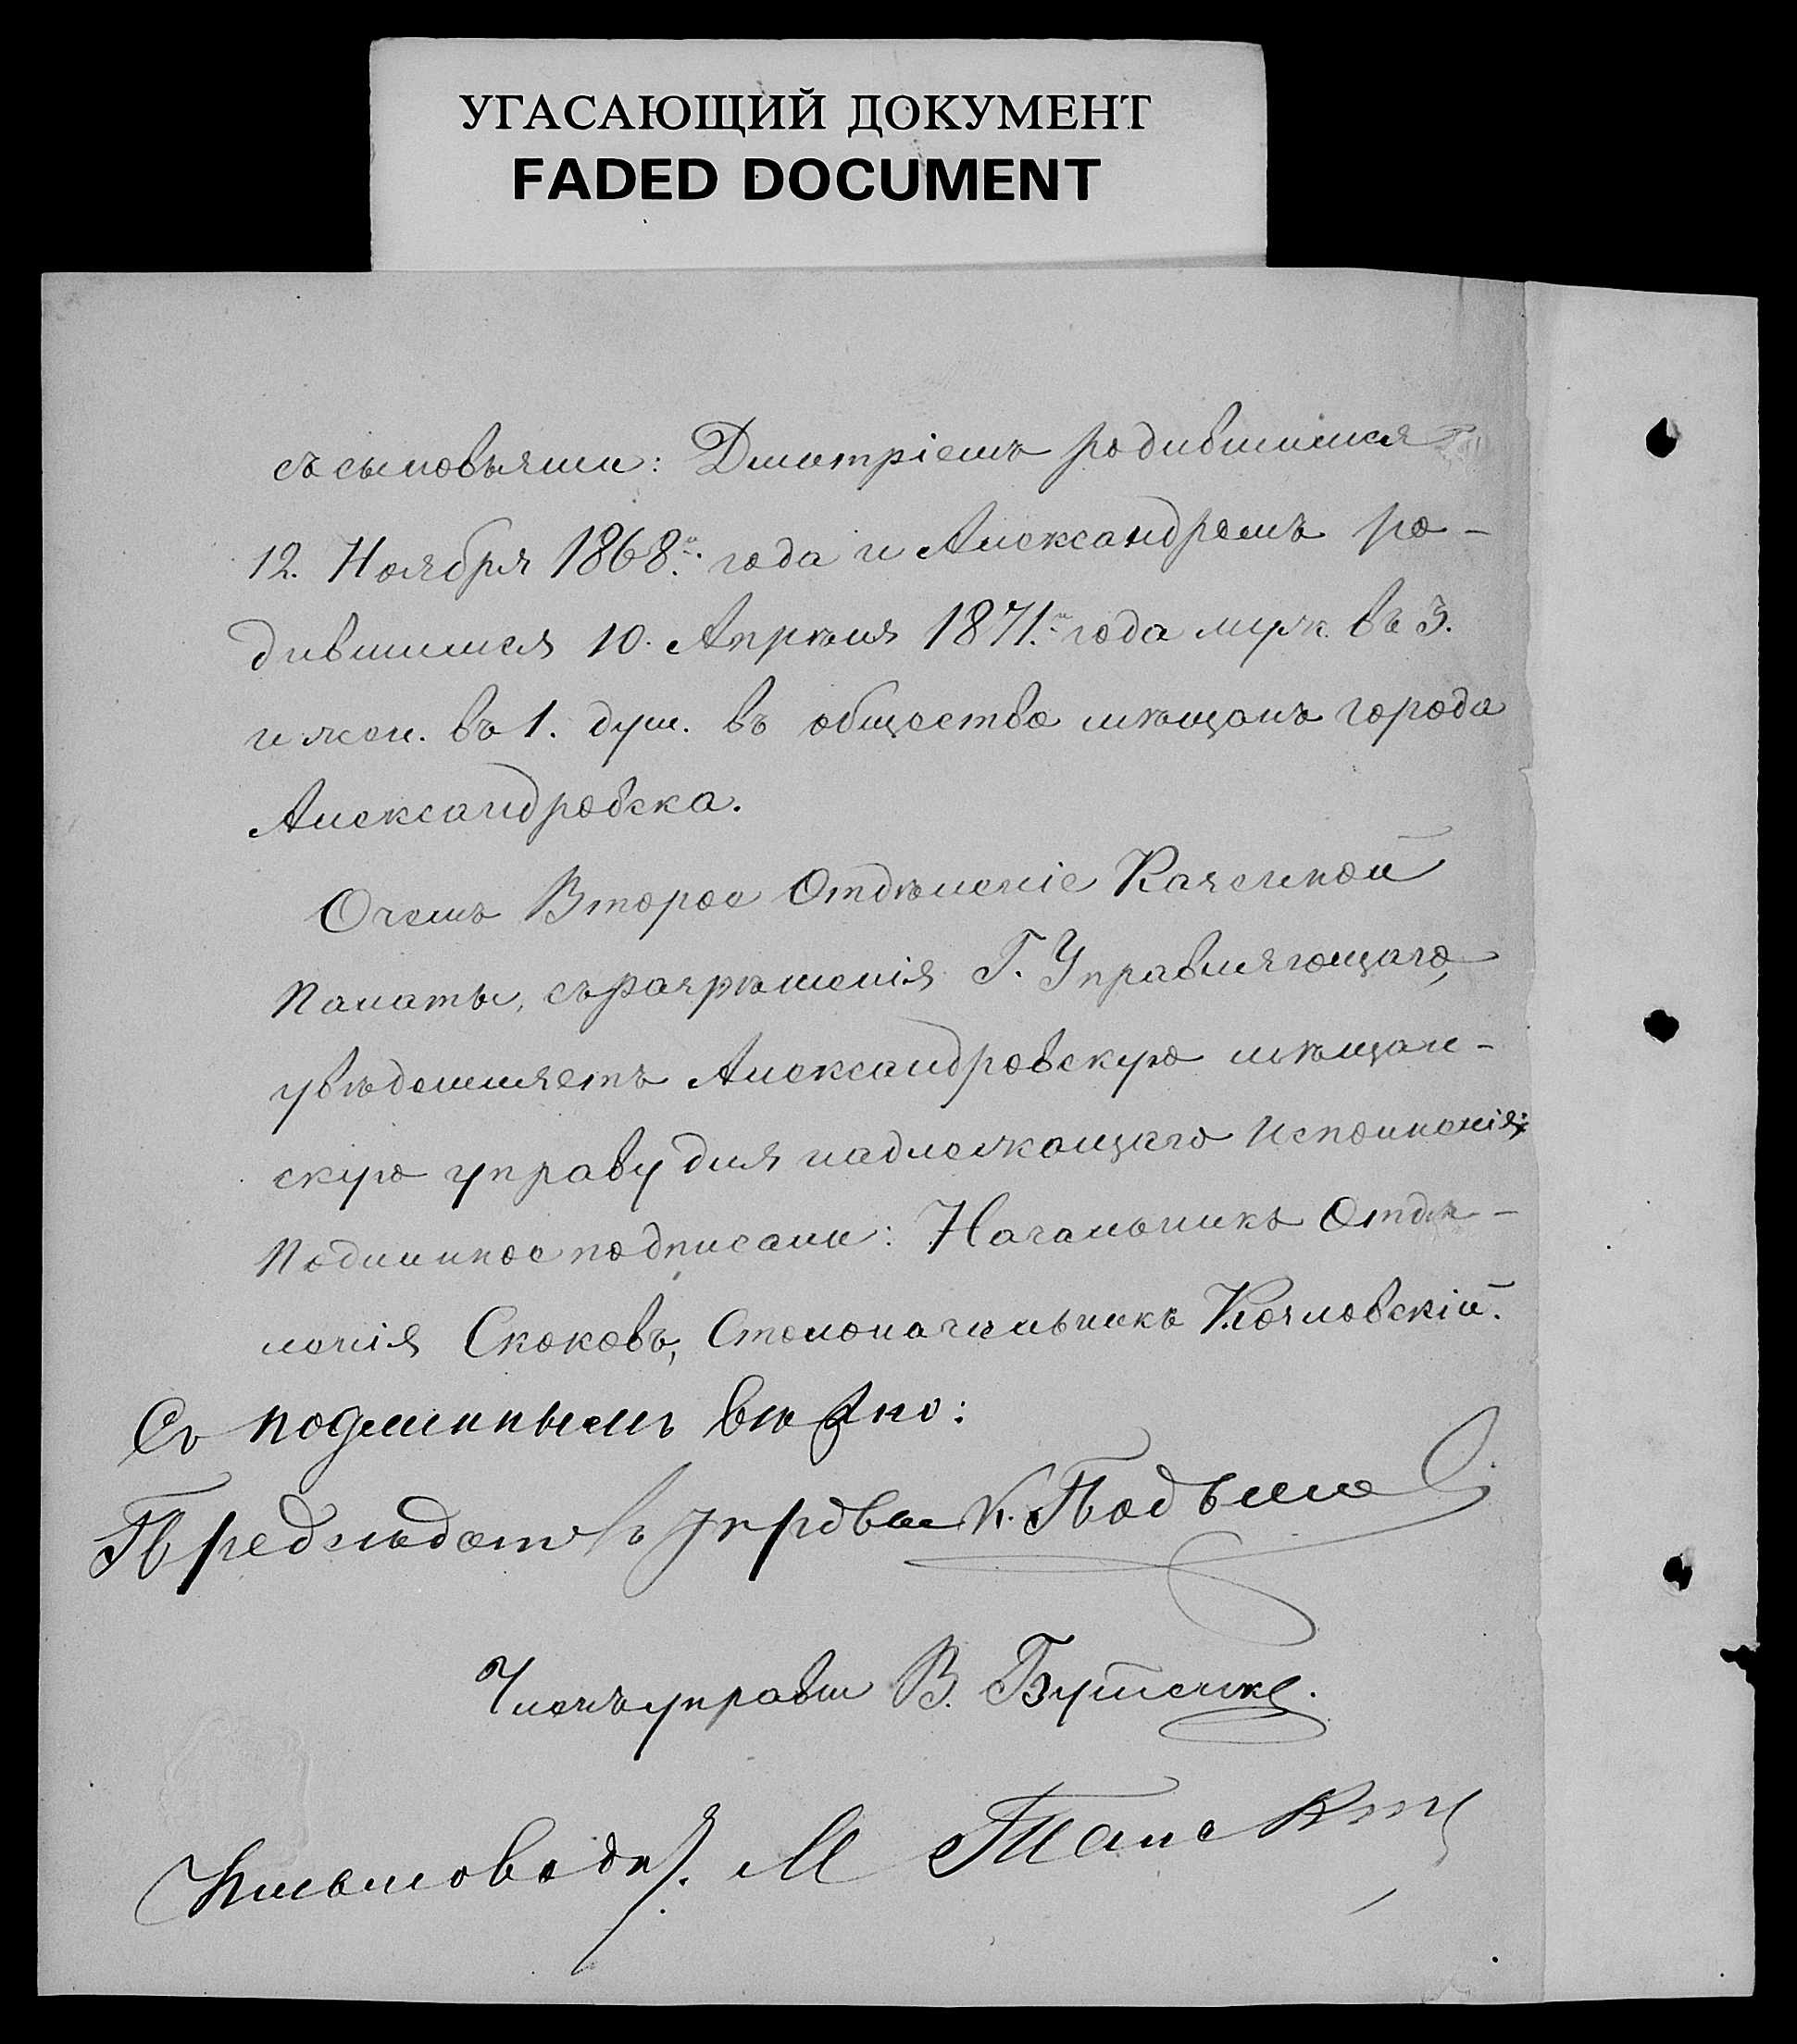 УГАСАЮЩИЙ ДОКУМЕНТ
FADED DOCUMENT
съ сыновьями: Дмитріемъ родившимся
12. Ноября 1868.го года и Александромъ ро-
дившимся 10. Апрѣля 1871.го года муж. въ 3.
и жен. въ 1. душ. въ общество мѣщанъ города
Александровска.
О чемъ Второе Отдѣленіе Казенной
Палаты, съ разрѣшенія Г. Управляющаго,
увѣдомляетъ Александровскую мѣщан-
скую управу для надлежащаго исполненія;
Подлинное подписали: Начальникъ Отдѣ-
ленія Скоковъ, Столоначальникъ Козловскій.
Съ подлиннымъ вѣрно:
Предсѣдат ль управы К.
Членъ управы В. Бутенко.
Письмовод. М